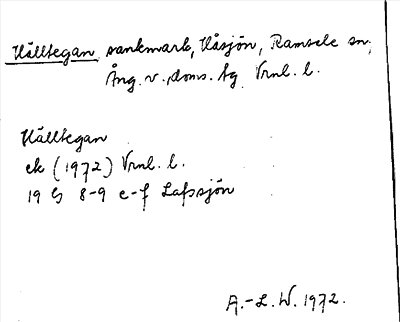 Källtegan, sankmark, Håsjön, Ramsele sn,
Ång. v. doms. fg Vrnl. l.
Källtegan
ek (1972) Vrnl. l.
19 G 8-9 e-f Lafssjön
A.-L. W. 1972.